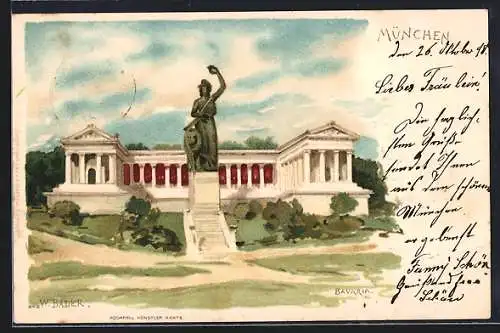 MÜNCHEN
den 26. Oktober 98.
Liebes Fräulein!
Die herzlichsten
Grüße
sendet Ihnen
aus dem schönen
München
ergebenst
Fanny Schön
BAVARIA.
W. BADER.
AQUARELL KÜNSTLER KARTE